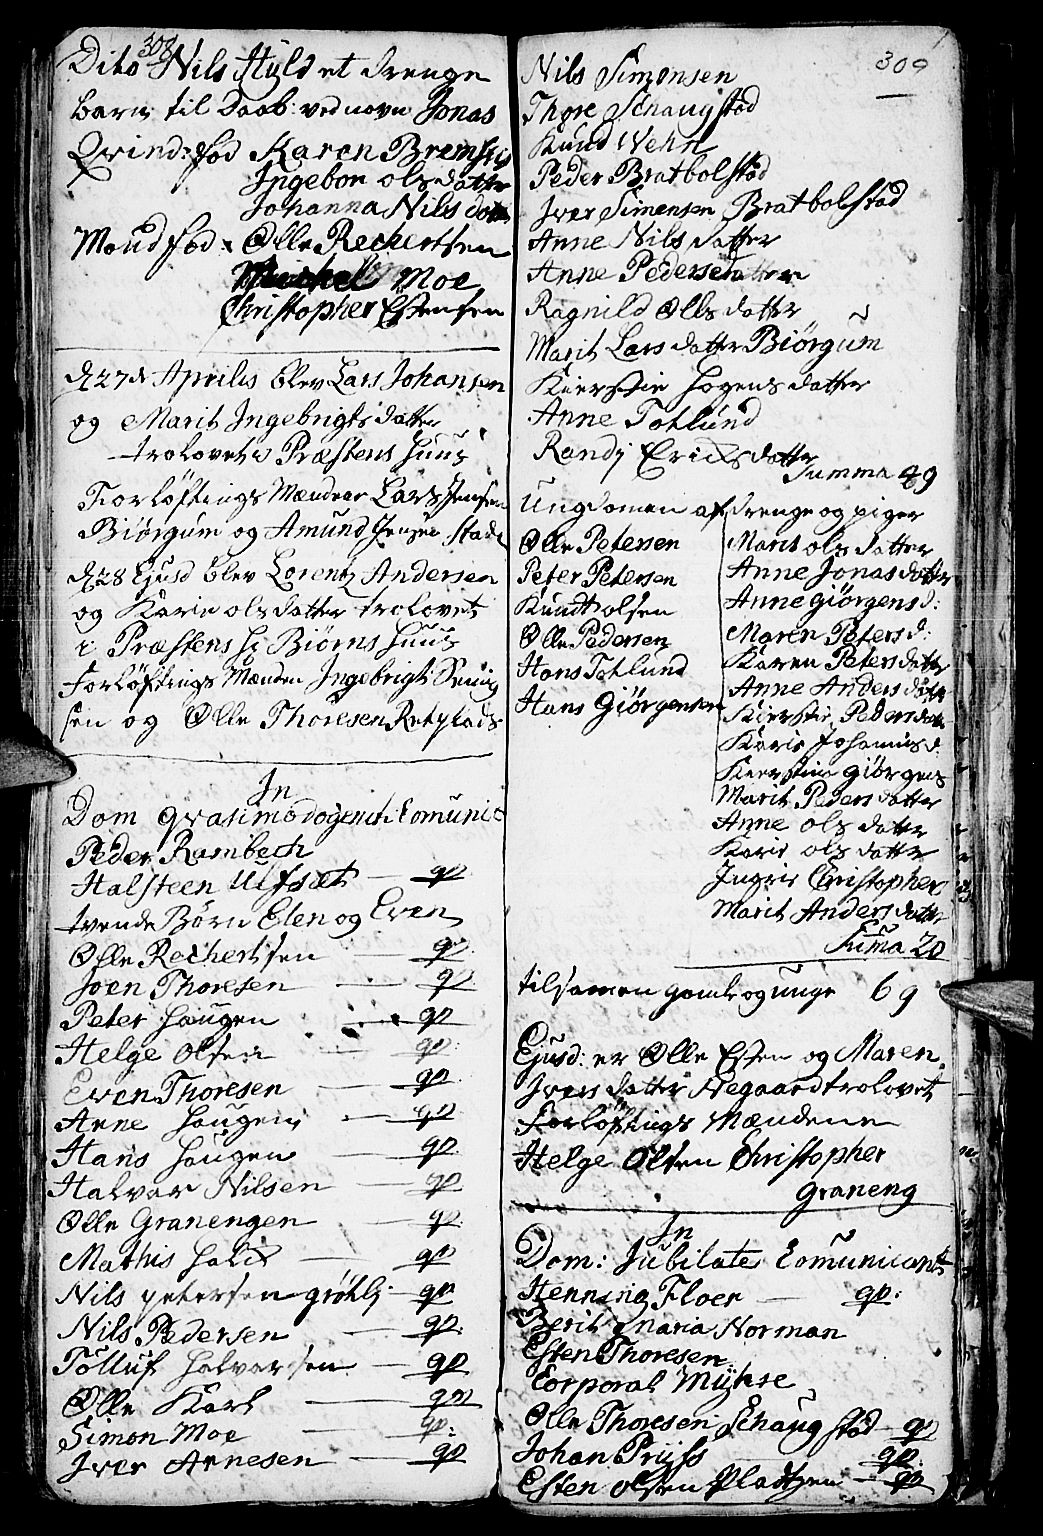 308
Dito Nils Hyld et drenge
barn til Daab: ved navn Jonas
Qvind: fod Karen Bremstij
Ingebor ols datter
Johanna Nils dotr
Mand fod: Olle Rechertsen
Michel Moe
Christopher Estensen
d 27 de Aprilis blev Lars Johansen
og Marit Ingebrigts datter
trolovet i Præstens huus
Forløftings Mændener Lars Jensen
Biørgum og Amund Jensen stade
d 28 Ejusd blev Lorentz Andersen
og Karie ols datter trolovet
i Præstens hr Biørns huus
forløftings Mænden Ingebrigt Svinj
sen og Olle Thoresen Retstads
In
Dom qvasimodogenit: Comunic
Peder Rambech
Halsteen Ulfsæt — qp
tvende Børn Elen og Even
Olle Rechertsen — qp
Joen Thoresen — qp
Peter haugen — qp
Helge olsen — qp:
Even Thoresen — qp
Anne haugen — qp
Hans haugen — qp
Halvor Nilsen — qp
Olle Granengen — qp
Mathis halid — qp
Nils petersen grøtlj — qp
Nils Pedersen — qp:
Tolluf halvorsen — qp
Olle Karl — qp
Simon Moe — qp:
Iver Arnesen — qp
309
Nils Simonsen
Thore Schaugstad
Knud Wehn
Peder Bratbolstad
Iver Simensen Bratbolstad
Anne Nils datter
Anne Pedersdatter
Ragnild Olls datter
Marit Lars datter Biørgum
Kierstie hogens datter
Anne Totlund
Randj Erichs datter
Summa 49
Ungdomen af drenge og piger
Olle Petersen
Peter Petersen
Knudt olsen
Olle Pedersen
Hans Totlund
Hans Giørgensen
Marit ols datter
Anne Jonas datter
Anne giørgens d:
Maren Peters d:
Karen Peters datter
Anne Anders datter
Kierstie Peders datt
Karie Johannis d
Kierstine giørgens
Marit Peders datter
Anne ols datter
Karie ols datter
Ingrie Christopher
Marit Anders datter
Suma 20
tilsamen gamle og unge 69
Ejusd: er Olle Esten og Maren
Ivers datter Negaard trolovet
Forløftings Mændene
Helge Olsen Christopher
Graneng
In
Dom: Jubilate Comunicant
Henning Floer — qp:
Berit Maria Norman
Esten Thoresen
Corporal Myhre
Olle Thoresen Schaugstad qp
Johan Prüss — qp
Esten olsen Pladtzen — qp